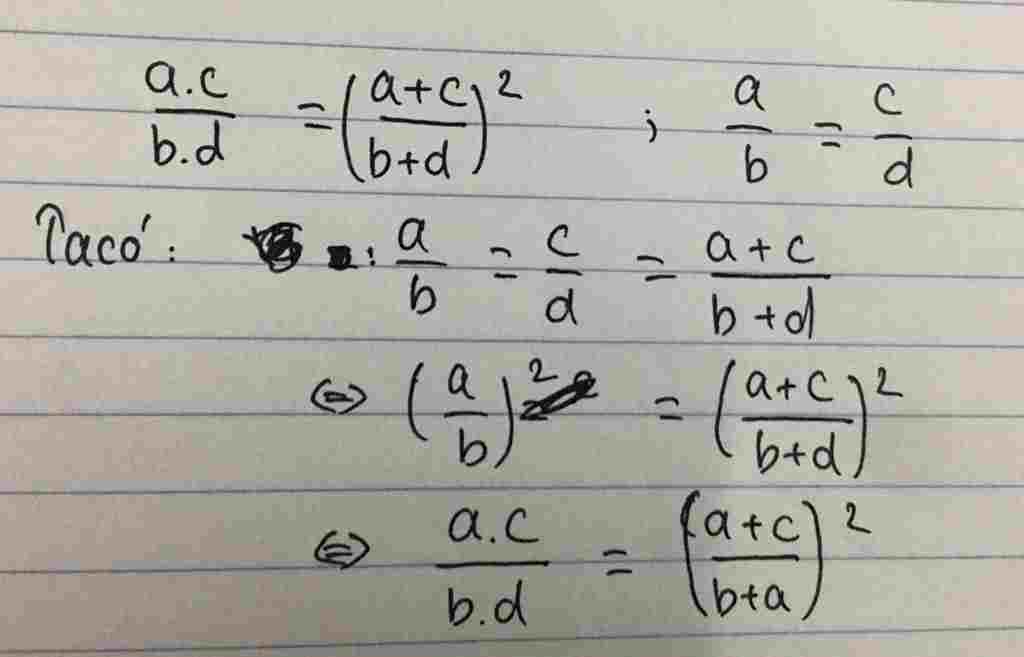 a.c/b.d = (a+c/b+d)² ; a/b = c/d
Ta có: : a/b = c/d = a+c/b+d
⇔ (a/b)² = (a+c/b+d)²
⇔ a.c/b.d = (a+c/b+a)²